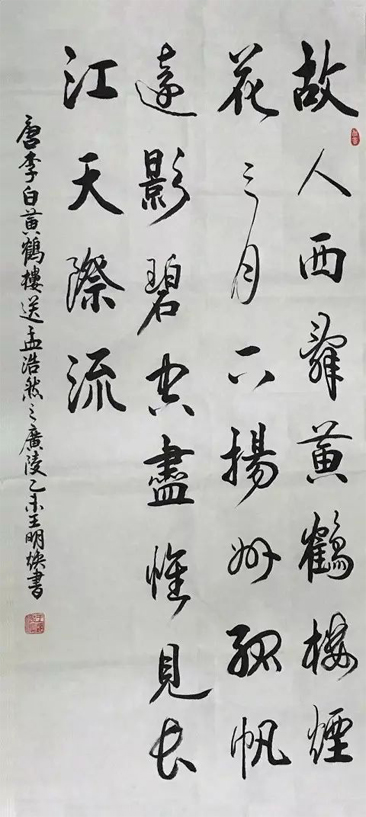 故人西辭黄鶴樓煙
花三月下揚州孤帆
遠影碧空盡惟見長
江天際流
唐李白黄鶴樓送孟浩然之廣陵乙未王明焕書